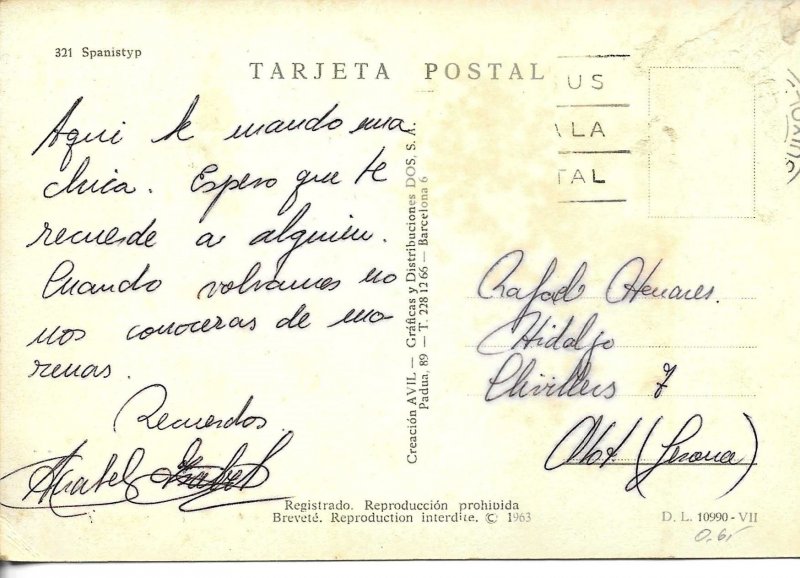 321 Spanistyp
TARJETA POSTAL
US
A LA
TAL
Aqui te mando una
chica. Espero que te
recuerde a alguien.
Cuando volvamos no
nos conoceras de mo
renas.
Recuerdos
Anabel Isabel
Creación AVIL — Gráficas y Distribuciones DOS, S. A.
Padua, 89 — T. 228 12 66 — Barcelona 6
Rafael Henares
Hidalgo
Clivillers 7
Olot (Gerona)
Registrado. Reproducción prohibida
Breveté. Reproduction interdite. © 1963
D. L. 10990 - VII